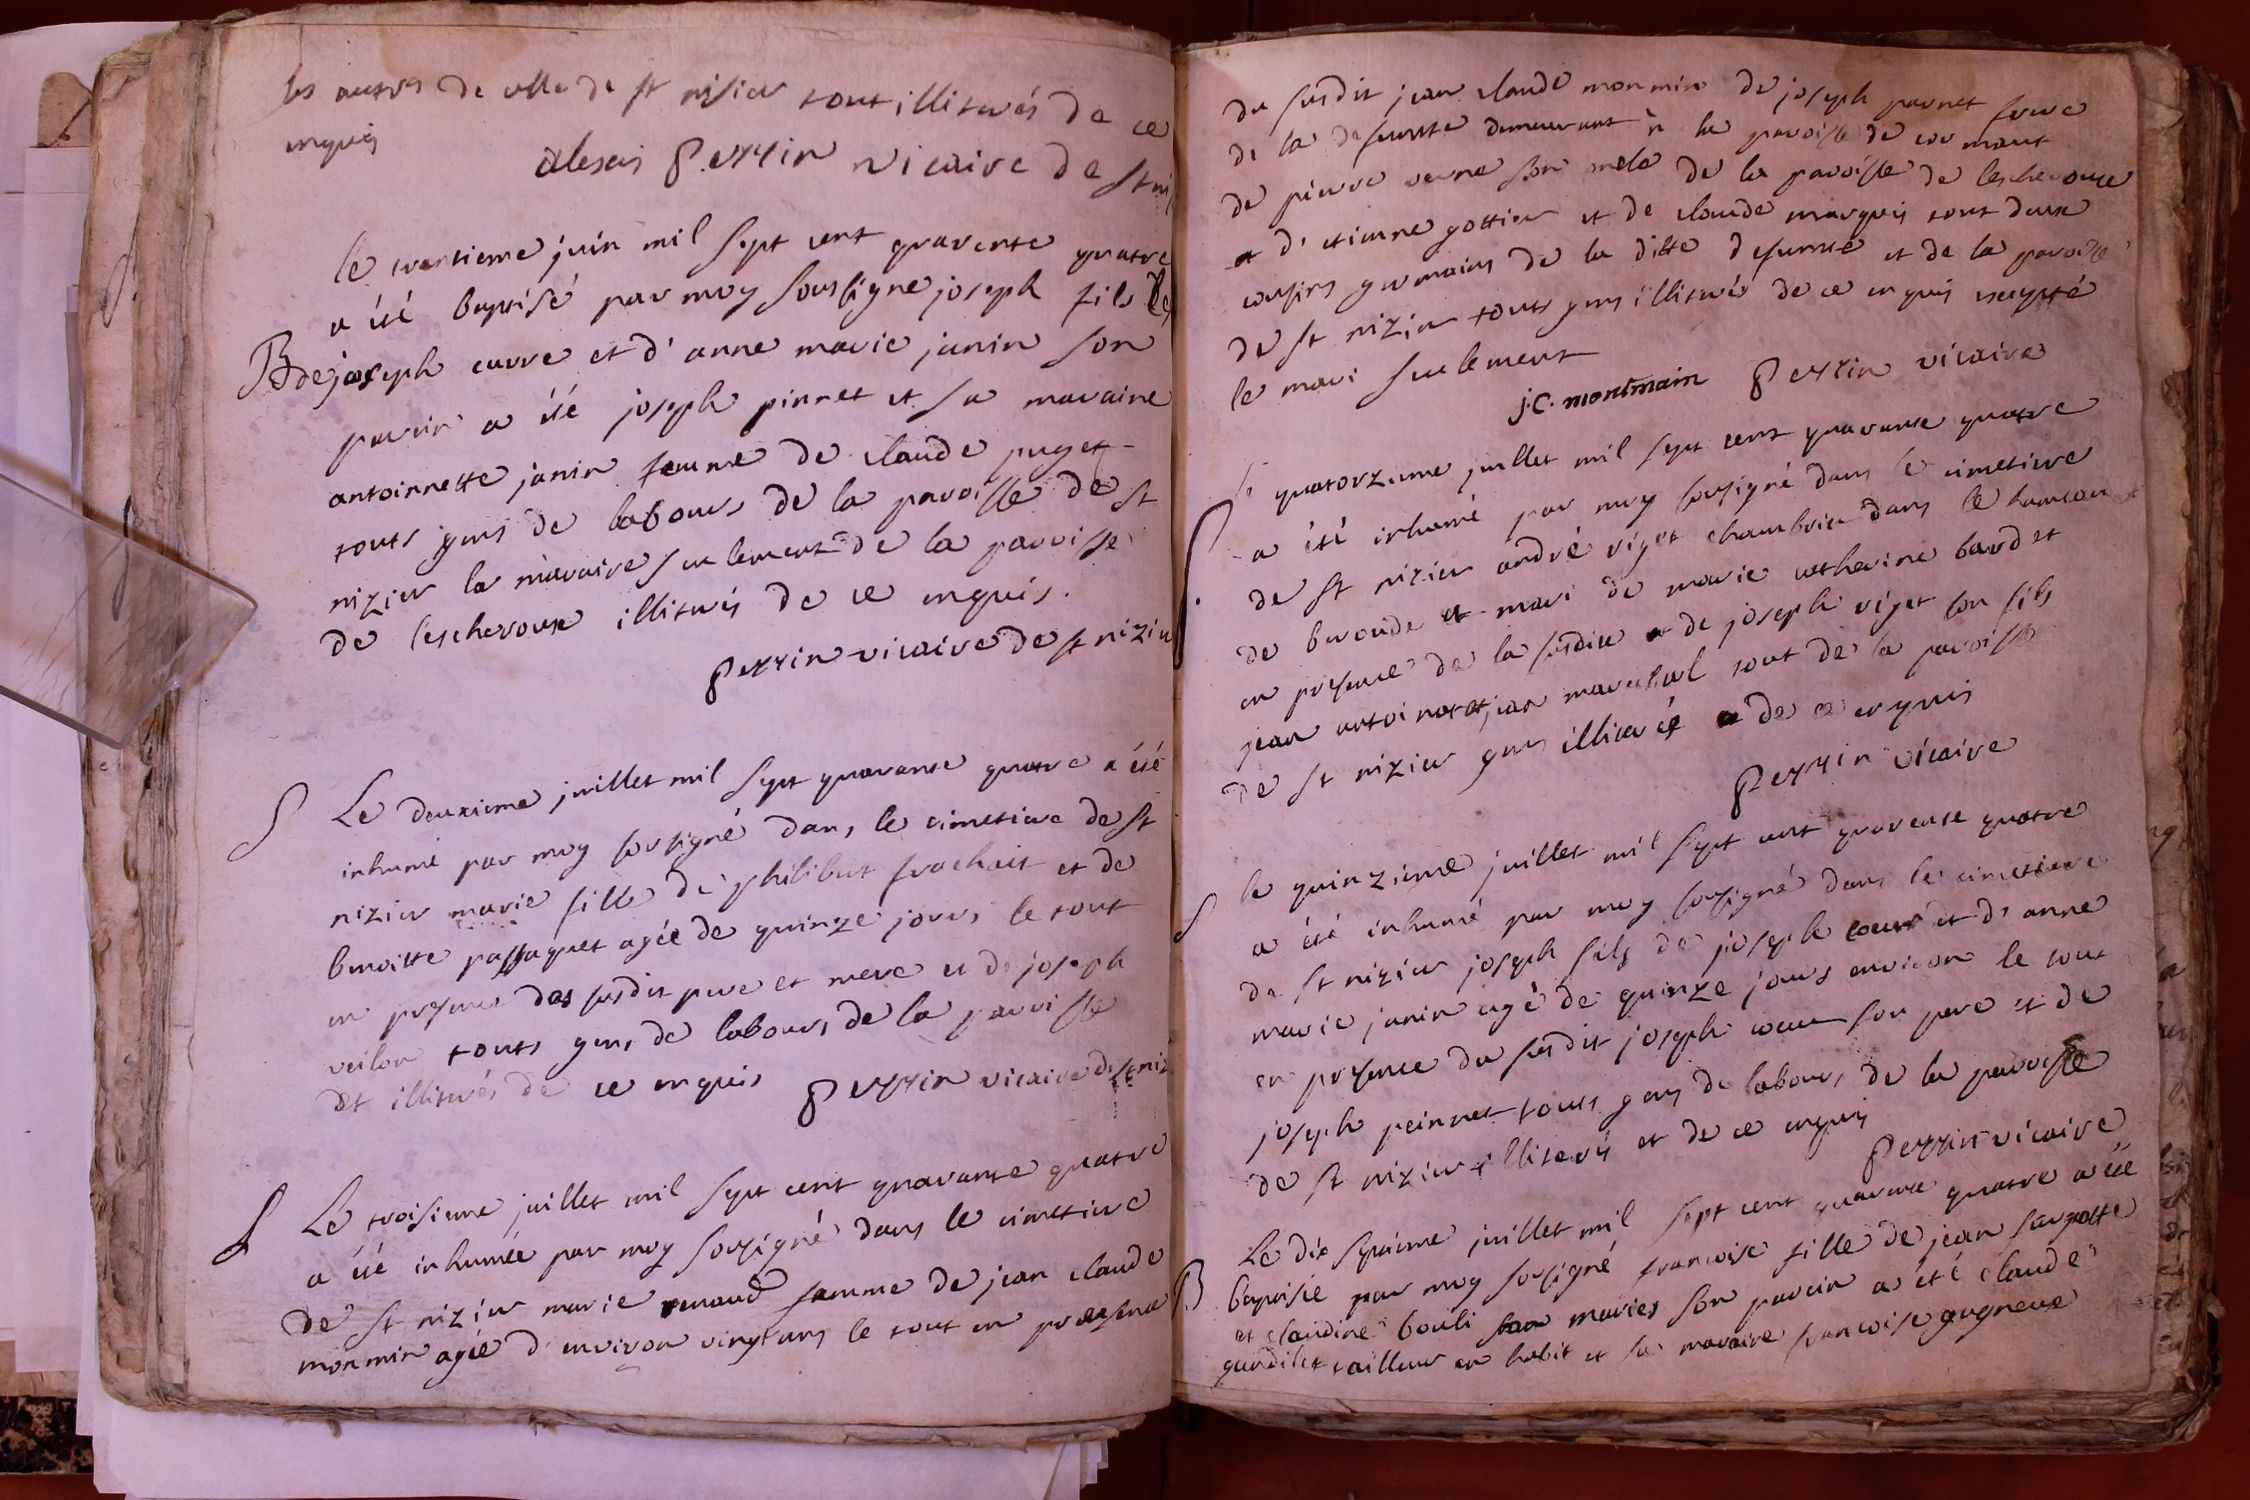 les autres de celle de st nisier tout illiterés de ce
enquis
alexis perrin vicaire de st ni
le trentieme juin mil sept cent quarente quatre
a été baptisé par moy soussigne joseph fils
B de joseph cuvre et d'anne marie janin son
parain a été joseph pinnet et sa maraine
antoinnette janin femme de claude puget
touts gens de labours de la paroisse de st
nizier la maraine seulement de la paroisse
de lescheroux illiterés de ce enquis.
perrin vicaire de st nizier
S Le deuxieme juillet mil sept quarante quatre a été
inhumé par moy sousigné dans le cimetiere de st
nizier marie fille de philibert frachait et de
benoitte passaquet agée de quinze jours le tout
en presence des susdit pere et mere et de joseph
veilon touts gens de labours de la paroisse
et illiterés de ce enquis perrin vicaire de st niz
S Le troisieme juillet mil sept cent quarante quatre
a été inhumée par moy sousigné dans le cimetiere
de st nizier marie renaud femme de jean claude
monmin agée d'environ vingt ans le tout en presence
du susdit jean claude monmin de joseph parnet frere
de la defuncte demeurant à la paroisse de cormout
de pierre verne son oncle de la paroisse de lescheroux
et d'etienne gottier et de claude marquis tout deux
cousins germains de la ditte defuncte et de la paroisse
de st nizier touts gens illiterés de ce enquis excepté
le mari seulement
j.C. montmain perrin vicaire
S le quatorzieme juillet mil sept cent quarante quatre
a été inhumé par moy sousigné dans le cimetiere
de st nizier andré viget chambrier dans le hameau
de beroude et mari de marie catherine baudet
en presence de la susdite et de joseph viget son fils
jean antoine et jean marechal tout de la paroisse
de st nizier gens illiteré et de ce enquis
perrin vicaire
S le quinzieme juillet mil sept cent quarente quatre
a été inhumé par moy sousigné dans le cimetiere
de st nizier joseph fils de joseph cœur et d'anne
marie janin agé de quinze jours environ le tout
en presence du susdit joseph cœur son pere et de
joseph peinnet touts gens de labours de la paroisse
de st nizier illiterés et de ce enquis
perrin vicaire
Le dix septieme juillet mil sept cent quarante quatre a été
B baptisée par moy sousigné francoise fille de jean
et claudine bouli mariés son parain a été claude
gandilet tailleur en habit et sa maraine francoise gugneux